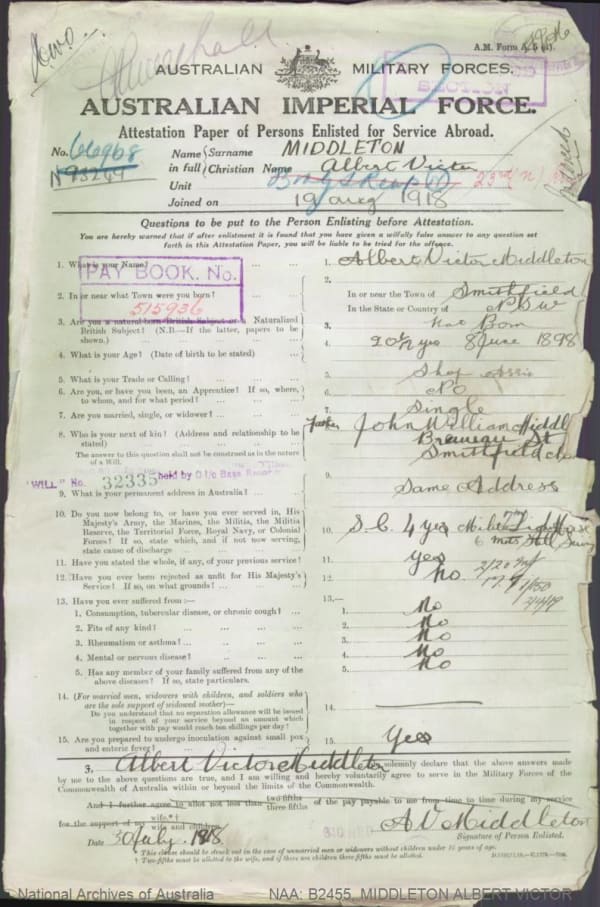 A.M. Form A.
AUSTRALIAN MILITARY FORCES.
SECTION
AUSTRALIAN IMPERIAL FORCE.
Attestation Paper of Persons Enlisted for Service Abroad.
No. 66968
N 93249
Name in full Surname MIDDLETON
Christian Name Albert Victor
Unit
Joined on 19 Aug 1918
Questions to be put to the Person Enlisting before Attestation.
You are hereby warned that if after enlistment it is found that you have given a wilfully false answer to any question set
forth in this Attestation Paper, you will be liable to be tried for the offence.
1. What is your Name? ... ... 1. Albert Victor Middleton
PAY BOOK. No.
515936
2. In or near what Town were you born? 2. In or near the Town of Smithfield
In the State or Country of NSW
3. Are you a natural born British Subject or a Naturalized
British Subject? (N.B.—If the latter, papers to be
shown.) 3. Nat Born
4. What is your Age? (Date of birth to be stated) 4. 20 1/12 yrs 8 June 1898
5. What is your Trade or Calling? 5. Shop Assis
6. Are you, or have you been, an Apprentice? If so, where,
to whom, and for what period? 6. No
7. Are you married, single, or widower? 7. Single
8. Who is your next of kin? (Address and relationship to be
stated) Father John William Middl
The answer to this question shall not be construed as in the nature
of a Will.
St
Smithfield
"WILL" No. 32335 held by O i/c Base Records
9. What is your permanent address in Australia? 9. Same Address
10. Do you now belong to, or have you ever served in, His
Majesty's Army, the Marines, the Militia, the Militia
Reserve, the Territorial Force, Royal Navy, or Colonial
Forces? If so, state which, and if not now serving,
state cause of discharge 10. S.C. 4 yrs
11. Have you stated the whole, if any, of your previous service? 11. Yes
12. Have you ever been rejected as unfit for His Majesty's
Service? If so, on what grounds? 12. No.
13. Have you ever suffered from:— 13.—
1. Consumption, tubercular disease, or chronic cough? 1. No
2. Fits of any kind? 2. No
3. Rheumatism or asthma? 3. No
4. Mental or nervous disease? 4. No
5. Has any member of your family suffered from any of the
above diseases? If so, state particulars. 5. No
14. (For married men, widowers with children, and soldiers who
are the sole support of widowed mother)—
Do you understand that no separation allowance will be issued
in respect of your service beyond an amount which
together with pay would reach ten shillings per day? 14.
15. Are you prepared to undergo inoculation against small pox
and enteric fever? 15. Yes
3. Albert Victor Middleton solemnly declare that the above answers made
by me to the above questions are true, and I am willing and hereby voluntarily agree to serve in the Military Forces of the
Commonwealth of Australia within or beyond the limits of the Commonwealth.
And I further agree to allot not less than two-fifths three-fifths of the pay payable to me from time to time during my service
for the support of my wife.*† wife and children.
A V Middleton
Signature of Person Enlisted.
Date 30 July 1918.
* This clause should be struck out in the case of unmarried men or widowers without children under 16 years of age.
† Two-fifths must be allotted to the wife, and if there are children three-fifths must be allotted.
© National Archives of Australia
NAA: B2455, MIDDLETON ALBERT VICTOR